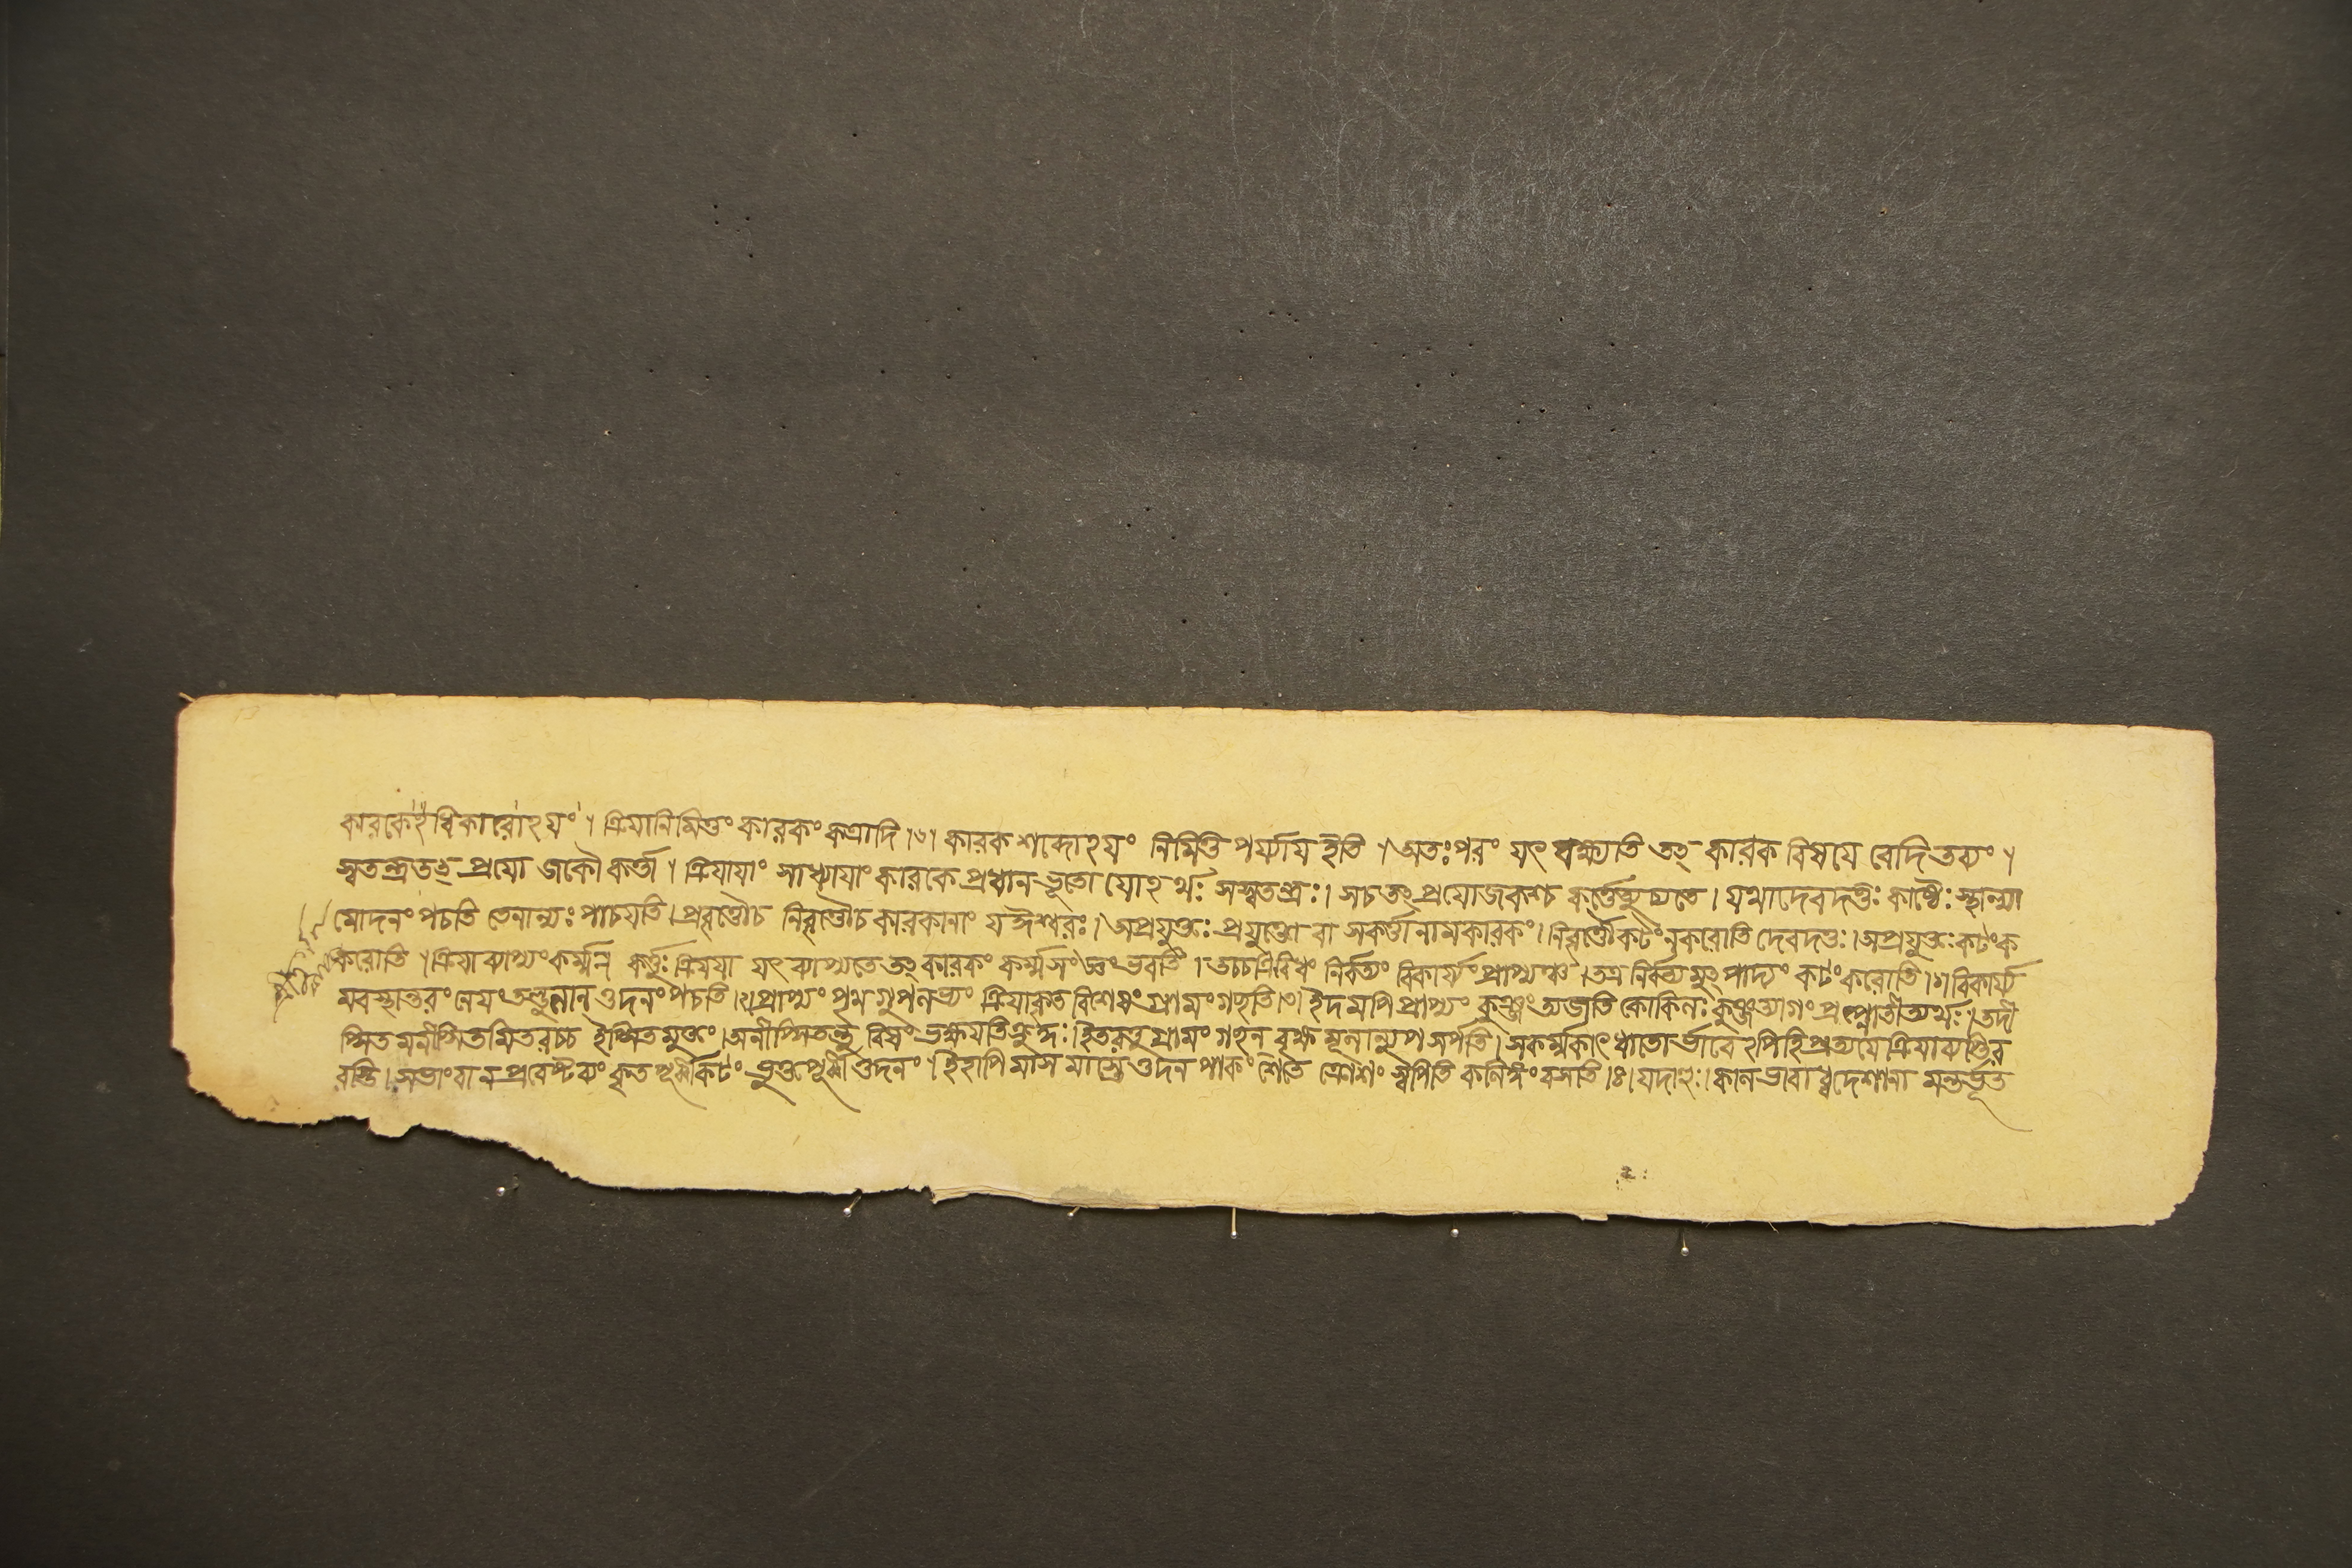 কারকেঽধিকারোঽয়ং । ক্রিয়ানিমিত্তং কারকং কত্রাদি ।১। কারক শব্দোঽয়ং নিমিত্ত পর্য্যায় ইতি । অতঃপরং যৎ বক্ষ্যতি তৎ কারক বিষয়ে বেদিতব্যং ।
স্বতন্ত্রতৎ প্রযোজকৌ কর্ত্তা । ক্রিয়ায়াং সাধ্যায়াং কারকে প্রধান ভূতো যোঽর্থঃ সস্বতন্ত্রঃ । সচ তৎ প্রযোজকশ্চ কর্ত্তেত্যুচ্যতে । যথাদেবদত্তঃ কাষ্ঠৈঃ স্থাল্যা
মোদনং পচতি তেনান্যঃ পাচয়তি । প্রবৃত্তৌচ নিবৃত্তৌচ কারকানাং যঈশ্বরঃ । অপ্রযুক্তঃ প্রযুক্তো বা সকর্ত্তা নামকারকং । নিবৃত্তৌকটং নকরোতি দেবদত্তঃ । অপ্রযুক্তঃ কটংক
করোতি । ক্রিয়াব্যাপ্যংকর্ম্ম কর্ত্তুঃ ক্রিয়য়া যৎ ব্যাপ্যতে তৎ কারকং কর্ম্মসংজ্ঞং ভবতি । তচ্চত্রিবিধং নির্বর্ত্যং বিকার্য্যং প্রাপ্যঞ্চ । তত্র নির্বর্ত্যমুৎপাদ্যং কটং করোতি ।১। বিকার্য্য
মবস্থান্তরং নেয়ং তণ্ডুলান্ ওদনং পচতি ।২। প্রাপ্যং ক্রিয়াকৃত বিশেষং গ্রামং গচ্ছতি ।৩। ইদমপি প্রাপ্যং কুঞ্জং ত্যজতি কোকিলঃ কুঞ্জত্যাগং প্রাপ্নোতীত্যর্থঃ । তদী
প্সিত মনীপ্সিতমিতরচ্চ ইপ্সিতমুক্তং । অনীপ্সিতন্তু বিষং ভক্ষয়তিক্রুদ্ধঃ । ইতরত্তু গ্রামং গচ্ছন্ বৃক্ষ মূলান্যুপসর্পতি । সকর্ম্মকাৎ ধাতো র্ভাবেঽপিহি প্রত্যয়ে ক্রিয়াব্যাপ্তির
রস্তি । সভাংবা ন প্রবেষ্টব্যং কৃতপূর্ব্বীকটং ভুক্তপূর্ব্বী ওদনং । ইহাপি মাস মাস্তে ওদন পাকং শেতে ক্রোশং স্বপিতি কলিঙ্গং বসতি ।৪। যদাহুঃ । কালভাবাধ্বদেশানা মন্তর্ভূত
২